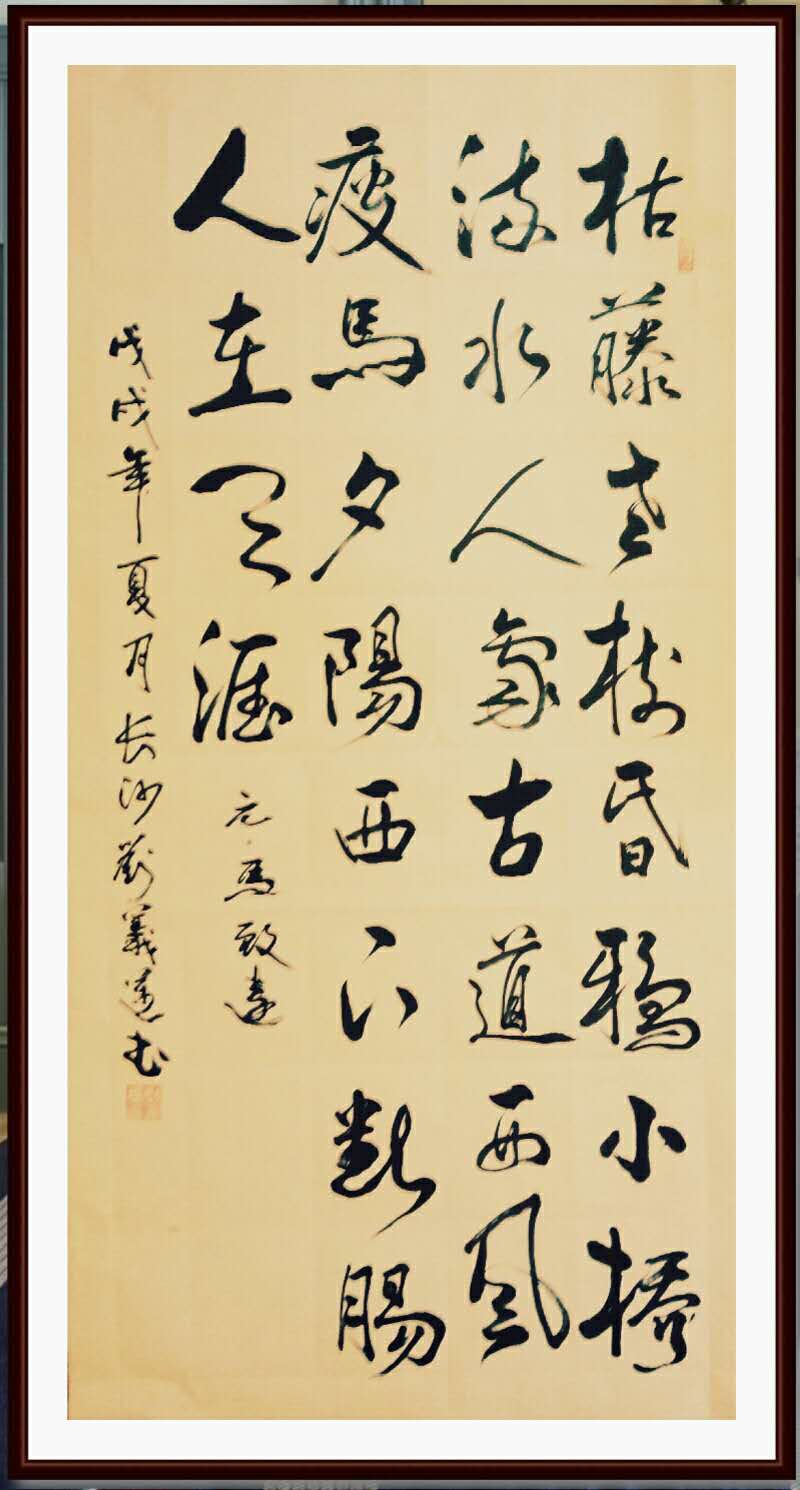 枯藤老樹昏鴉小橋
流水人家古道西風
瘦馬夕陽西下斷腸
人在天涯 元·馬致遠
戊戌年夏月长沙劉義书